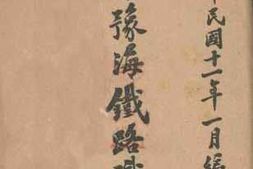 民國十一年一月編
豫海鐵路